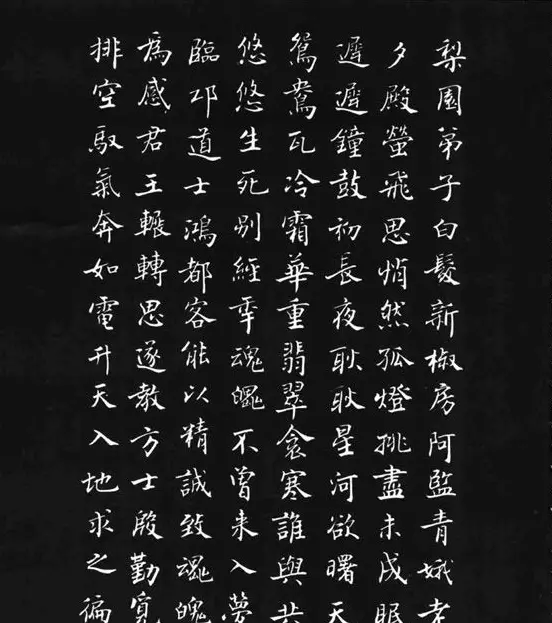 梨園弟子白髮新椒房阿監青娥老
夕殿螢飛思悄然孤燈挑盡未成眠
遲遲鐘鼓初長夜耿耿星河欲曙天
鴛鴦瓦冷霜華重翡翠衾寒誰與共
悠悠生死別經年魂魄不曾来入夢
臨邛道士鴻都客能以精誠致魂魄
為感君王輾轉思遂教方士殷勤覓
排空馭氣奔如電升天入地求之徧